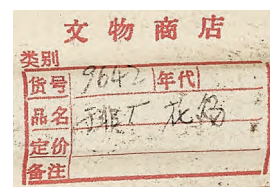 文物商店
类别
货号 9642 年代
品名 花鸟
定价
备注